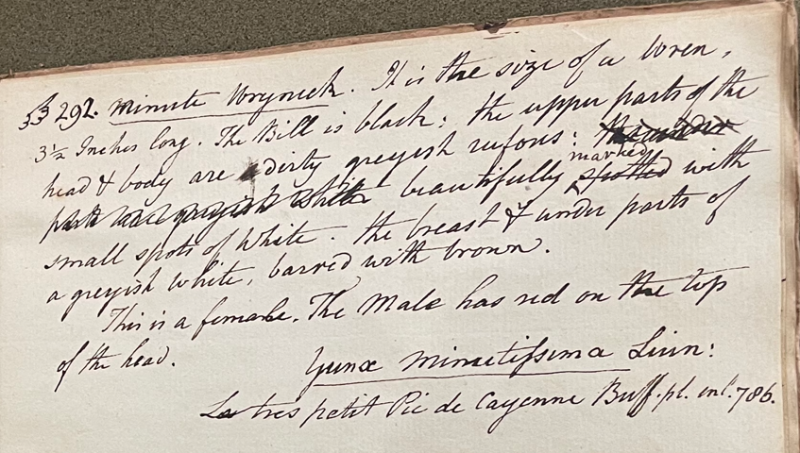 292. Minute Wryneck. It is the size of a Wren,
3½ Inches long. The Bill is black: the upper parts of the
head & body are dirty greyish rufous: The under
parts are greyish white beautifully spotted marked with
small spots of white. the breast & under parts of
a greyish white, barred with brown.
This is a female. The Male has red on the top
of the head.
Yunx Minutissima Linn:
Le tres petit Pic de Cayenne Buff. pl. enl. 786.